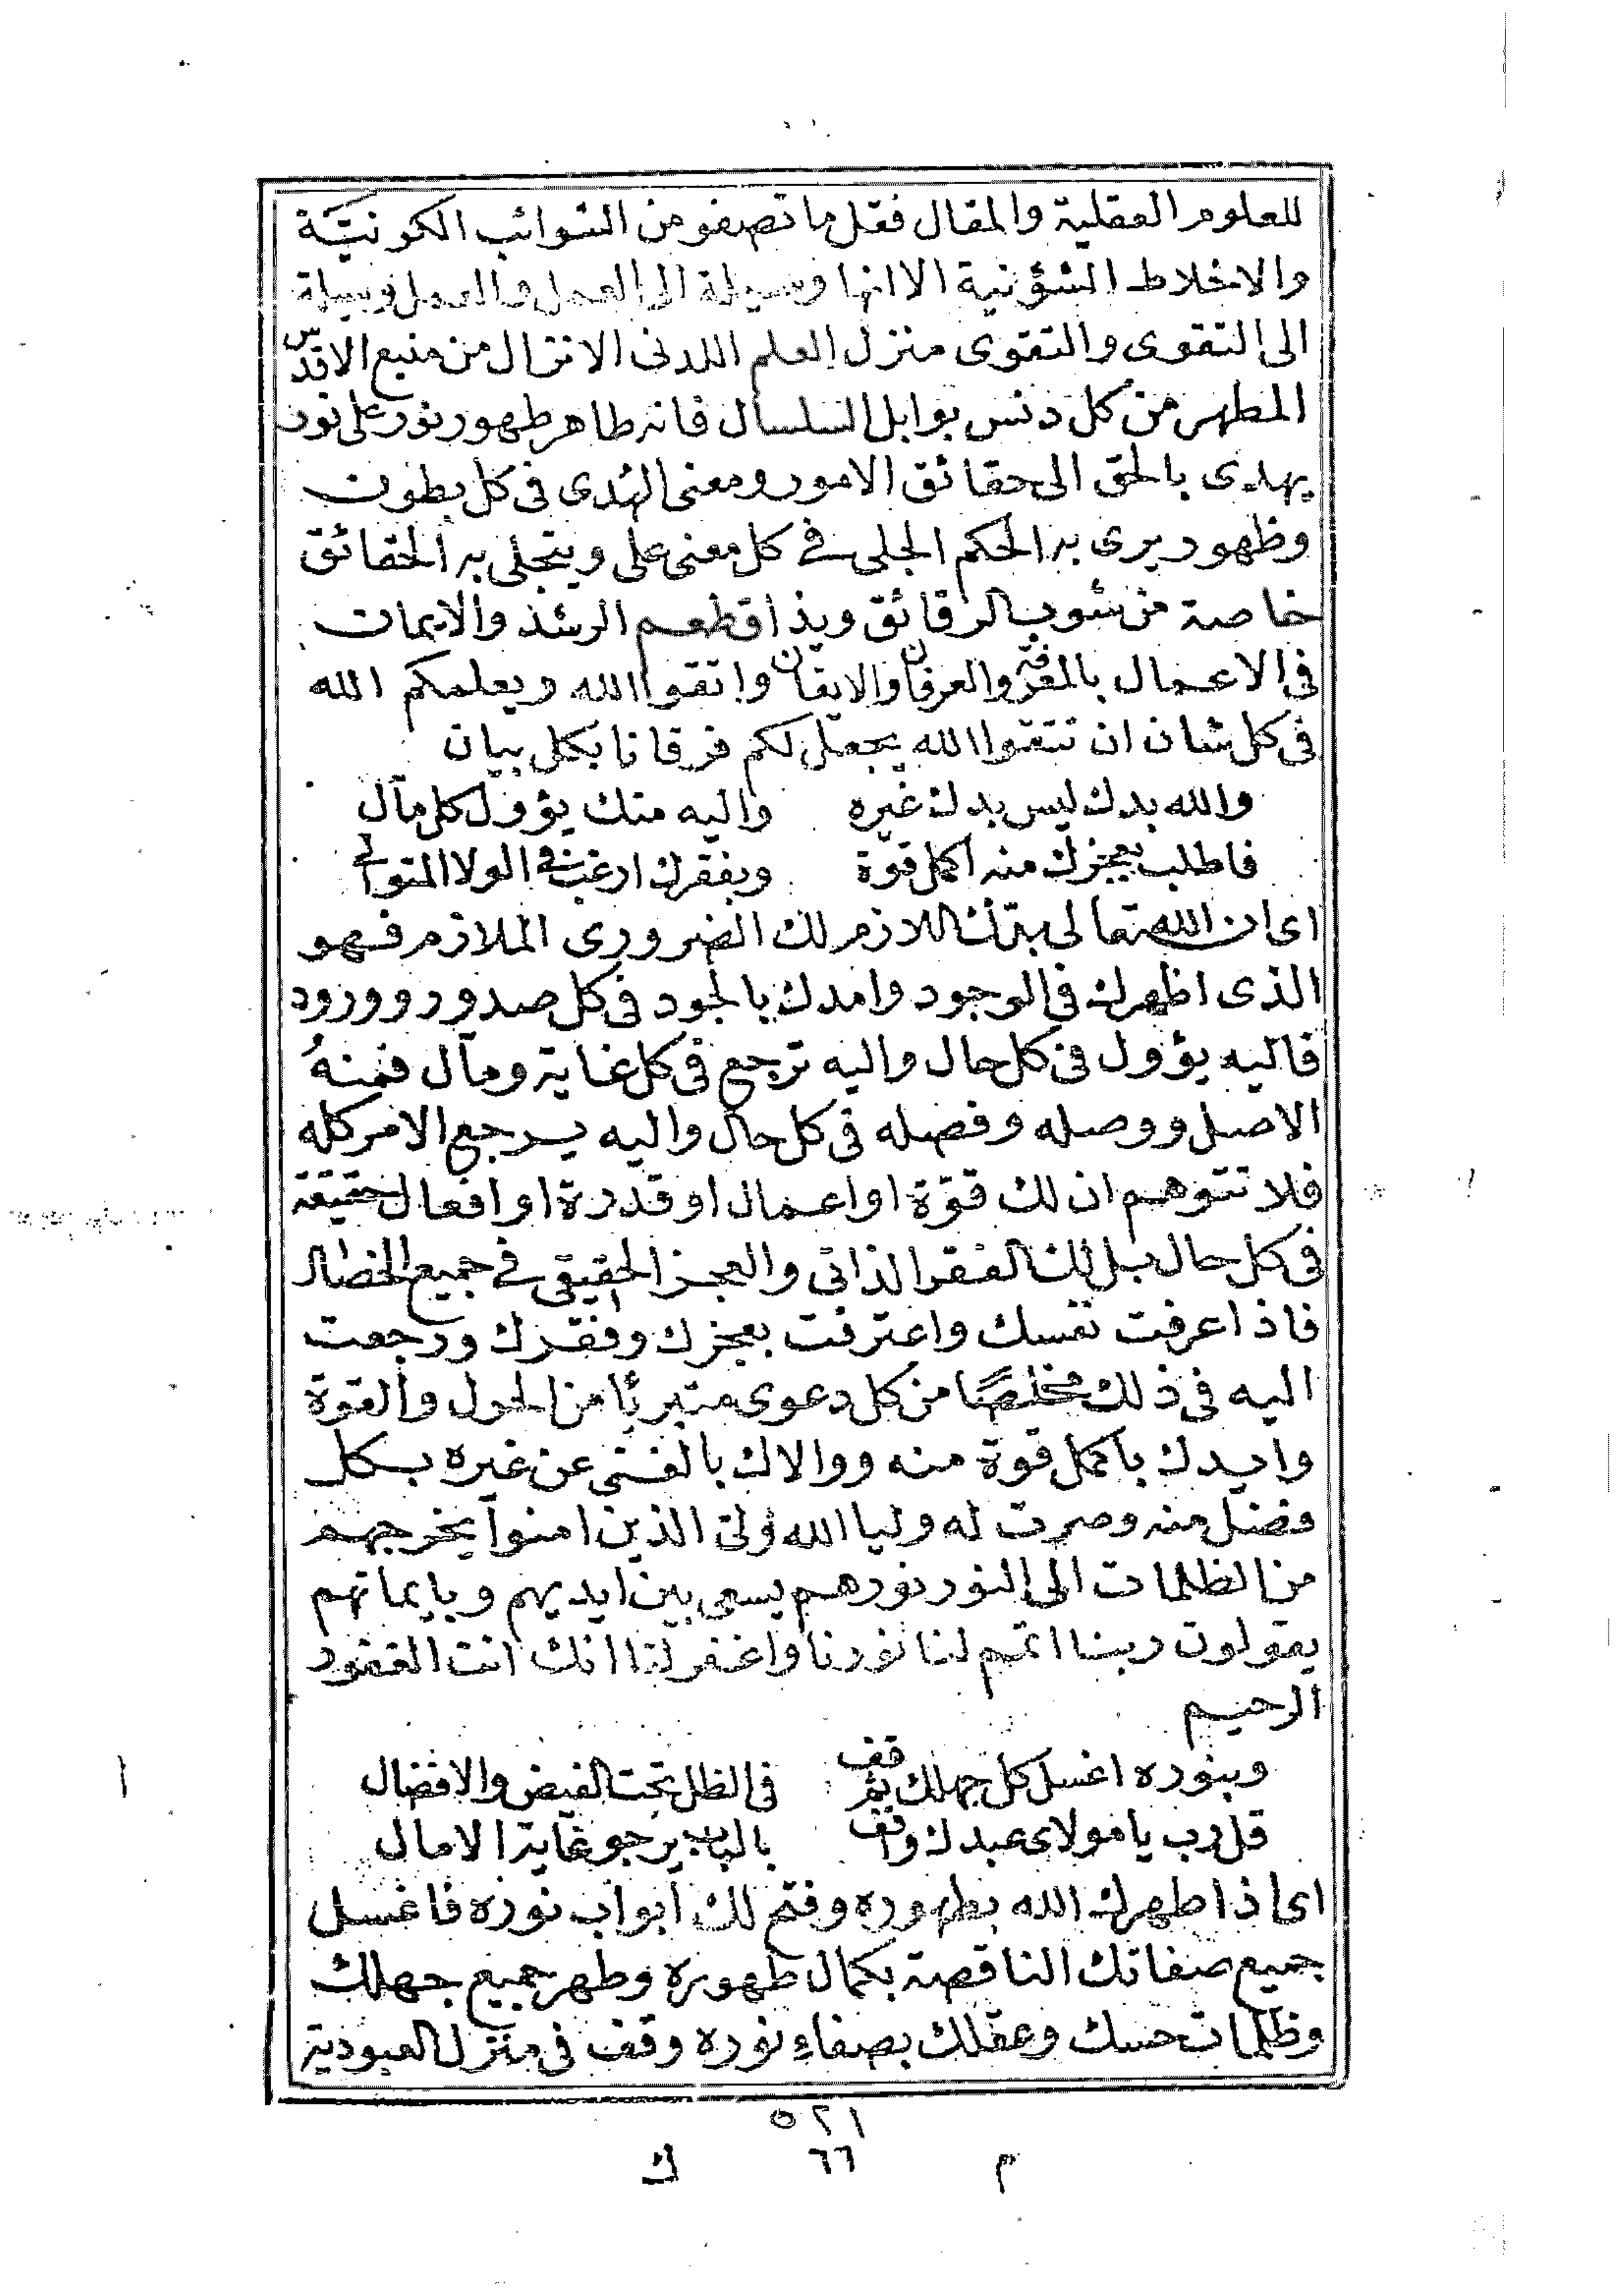 للعلوم العقلية والمقال فقل ما تصفو من الشوائب الكونيَّة
والاخلاط الشؤنية الا انها وسيلة الى العمل والعمل وسيلة
الى التقوى والتقوى منزل العلم اللدنى الانزال من منبع الاقدس
المطهر من كل دنس بوابل السلسال فانه طاهر طهور نور على نور
يهدى بالحق الى حقائق الامور ومعنى الهدى فى كل بطون
وظهور يرى به الحكم الجلى فى كل معنى على ويتجلى به الحقائق
خاصة من شوب الرقائق ويذاق طعم الرشد والايمان
فى الاعمال بالمعرفة والعرفان والايقان واتقوا الله ويعلمكم الله
فى كل شان ان تتقوا الله يجعل لكم فرقانا بكل بيان
والله بدك ليس بدك غيره واليه منك يؤول كل مآل
فاطلب بعجزك منه اكمل قوة وبفقرك ارغب فى الولا المتوالى
اى ان الله تعالى بدك اللازم لك الضرورى الملازم فهو
الذى اظهرك فى الوجود وامدك بالجود فى كل صدور وورود
فاليه يؤول فى كل حال واليه ترجع فى كل غاية ومآل فمنهُ
الاصل ووصله وفصله فى كل حال واليه يرجع الامر كله
فلا تتوهم ان لك قوّة او اعمال او قدرة او افعال حقيقة
فى كل حال بل لك الفقر الذاتى والعجز الحقيقى فى جميع الخصال
فاذا عرفت نفسك واعترفت بعجزك وفقرك ورجعت
اليه فى ذلك مخلصًا من كل دعوى متبرئا من الحول والقوة
وايدك باكمل قوة منه ووالاك بالغنى عن غيره بكل
فضل منه وصرت له وليا الله ولى الذين امنوا يخرجهم
من الظلمات الى النور نورهم يسعى بين ايديهم وبايمانهم
يقولون ربنا اتمم لنا نورنا واغفر لنا انك انت الغفور
الرحيم
وبنوره اغسل كل جهلك ثم قف فى الظل تحت الفيض والافضال
قل رب يا مولاى عبدك واقف بالباب يرجو غاية الامال
اى اذا طهرك الله بطهوره وفتح لك ابواب نوره فاغسل
جميع صفاتك الناقصة بكمال طهوره وطهر جميع جهلك
وظلمات حسك وعقلك بصفاء نوره وقف فى منزل العبودية
٥٢١
م ٦٦ ك